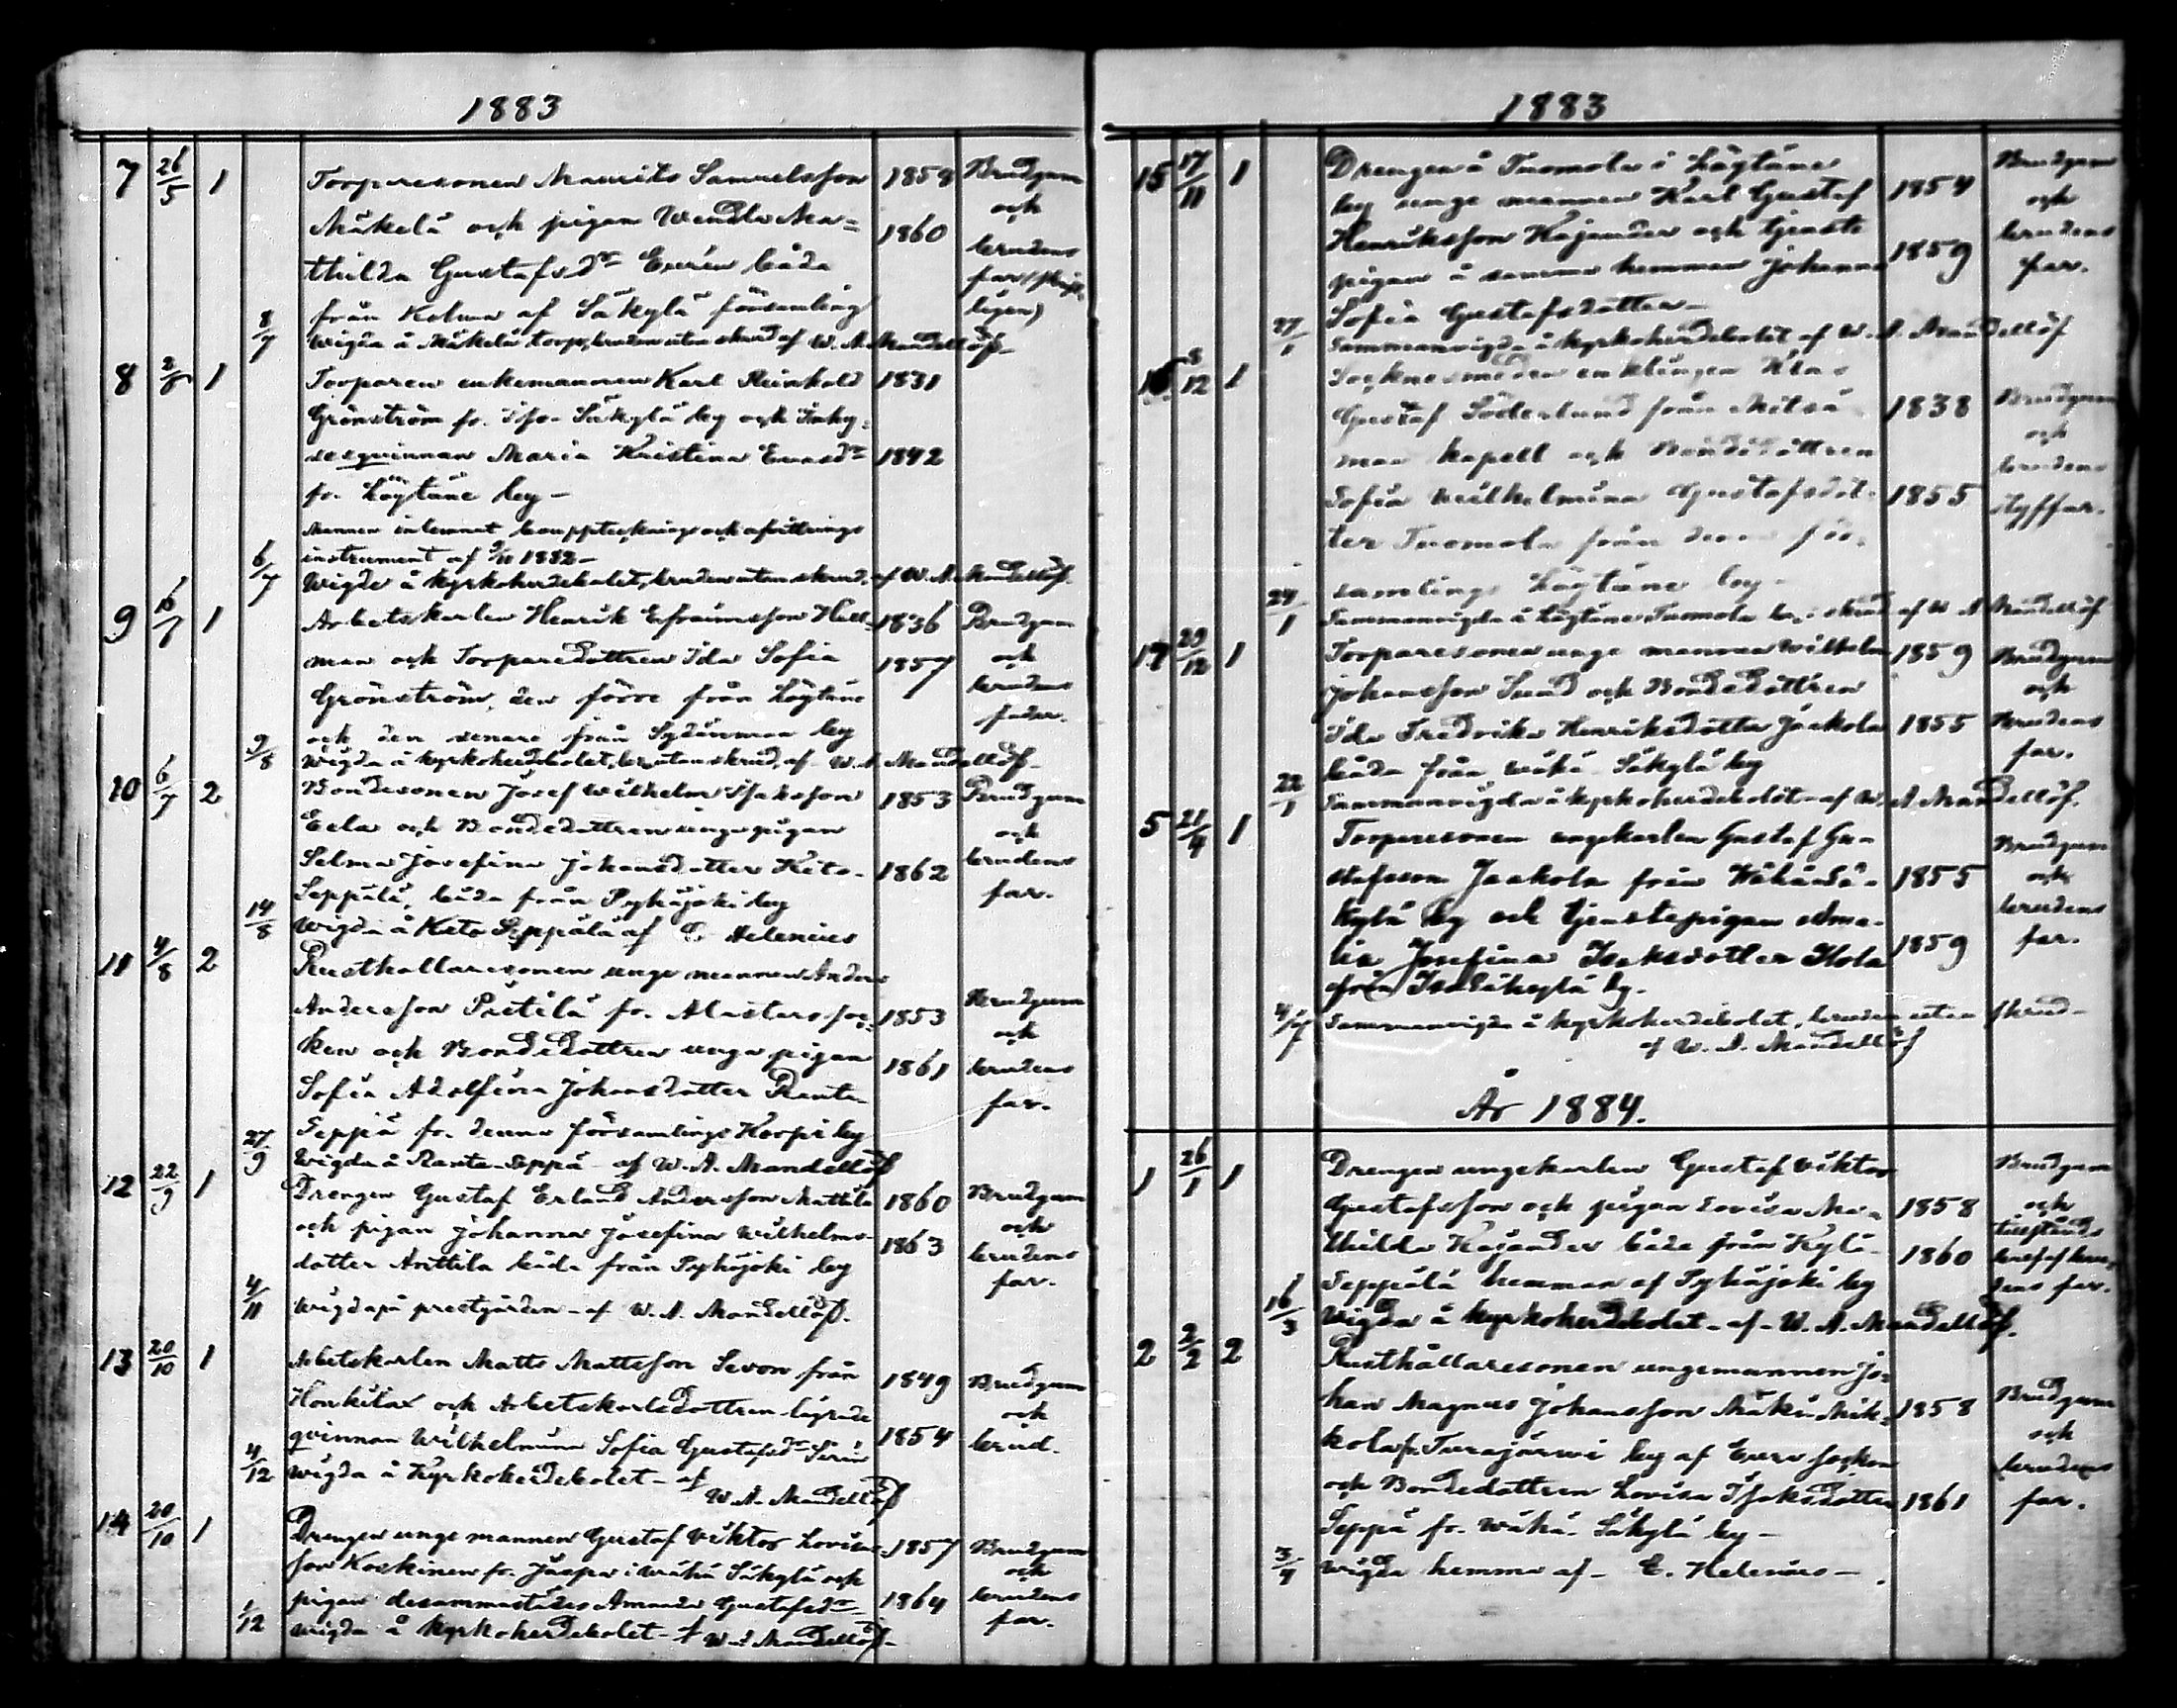 1883
7 26/5 1 Torparesonen Maurits Samuelsson 1858 Brudgum
Mäkelä och pigan Wendla Ma= 1860 och
thilda Gustafsdr Eurén båda brudens
från Kolma af Säkylä församling far
8/7 Wigda å Mäkelä torp, bruden utan skrud af W. A. Mandellöf
8 2/6 1 Torparen enkemannen Karl Reinhold 1831
Grönström fr. Iso-Säkylä by och Inhy-
sesquinnan Maria Kristina Evasdr 1842
fr. Löytäne by -
Mannen inlemnat bouppteckning och afvittrings
instrument af 9/11 1882 -
6/7 Wigde å kyrkoherdebolet, bruden utan skrud, af W. A. Mandellöf.
9 16/7 1 Arbetskarlen Henrik Efraimsson Hell- 1836 Brudgum
man och Torparedottren Ida Sofia 1857 och
Grönström, den förre från Löytäne brudens
och den senare från Sydänmaa by fader.
9/8 Wigda å kyrkoherdebolet, br. utan skrud, af W. A. Mandellöf
10 6/7 2 Bondesonen Josef Wilhelm Isaksson 1853 Brudgum
Eela och Bondedottren unga pigan och
Selma Josefina Johansdotter Keto- 1862 brudens
Seppälä, båda från Pyhäjoki by far.
14/8 Wigda å Keto Seppälä af E. Helenius
11 4/8 2 Rusthållaresonen unge mannen Anders
Andersson Prètilä fr. Alastaro soc- 1853 Brudgum
ken och Bondedottren unga pigan 1861 och
Sofia Adolfina Johansdotter Ranta brudens
Seppä fr. denna församlings Korpi by far.
27/9 Wigda å Ranta-Seppä af W. A. Mandellöf
12 22/9 1 Drengen Gustaf Erland Andersson Mattila 1860 Brudgum
och pigan Johanna Josefina Wilhelms- 1863 och
dotter Anttila båda från Pyhäjoki by brudens
far.
4/11 Wigda på prestgården - af W. A. Mandellöf.
13 20/10 1 Arbetskarlen Matts Mattsson Sevon från 1849 Brudgum
Honkilax och Arbetskarlsdottren lägrade och
qvinnan Wilhelmina Sofia Gustafsdr Sirén 1854 brud.
4/12 Wigda å Kyrkoherdebolet - af
W. A. Mandellöf
14 20/10 1 Drengen unge mannen Gustaf Viktor Lovisa- 1857 Brudgum
son Koskinen fr. Juspa i Wähä Säkylä och och
pigan desammastädes Amanda Gustafsdr 1864 brudens
1/12 wigda å kyrkoherdebolet - af W. A. Mandellöf - far.
1883
15 17/11 1 Drengen å Tuomola i Löytäne Brudgum
by unge mannen Karl Gustaf 1854 och
Henriksson Kajander och tjenste brudens
pigan å samma hemman Johanna 1859 far.
Sofia Gustafsdotter -
27/1 Sammanvigda å kyrkoherdebolet af W. A. Mandellöf
16 8/12 1 Socknesmeden enklingen Klas
Gustaf Söderlund från Metsä 1838 Brudgum
maa kapell och Bondedottren och
Sofia Wilhelmina Gustafsdot- 1855 brudens
ter Tuomola från denna för- styffar.
samlings Löytäne by -
24/1 Sammanvigda å Löytäne Tuomola br. i skrud af W. A. Mandellöf
17 29/12 1 Torparesonen unge mannen Wilhelm 1859 Brudgum
Johansson Sund och Bondedottren och
Ida Fredrika Henriksdotter Jaakola 1855 brudens
båda från Wähä-Säkylä by far.
22/1 Sammanvigda å kyrkoherdebolet - af W. A. Mandellöf.
5 21/4 1 Torparesonen ungkarlen Gustaf Gu- Brudgum
stafsson Jaakola från Wähä-Sä- 1855 och
kylä by och tjenstepigan Ama- brudens
lia Josefina Isaksdotter Ilola 1859 far.
från Iso Säkylä by.
Sammanvigda å kyrkoherdebolet, bruden utan skrud -
af W. A. Mandellöf
År 1884.
1 26/1 1 Drengen ungkarlen Gustaf Viktor Brudgum
Gustafsson och pigan Lovisa Ma- 1858 och
thilda Kajander båda från Kylä- 1860 tillstånds
Seppälä hemman af Pyhäjoki by dens far.
16/3 Wigda å kyrkoherdebolet - af - W. A. Mandellöf.
2 2/2 2 Rusthållaresonen ungemannen Jo-
han Magnus Johansson Mäki-Mik- 1858 Brudgum
kola fr. Turajärvi by af Eura socken och
och Bondedottren Lovisa Isaksdotter 1861 brudens
Seppä fr. Wähä-Säkylä by - far.
3/4 Wigda hemma af - E. Helenius -